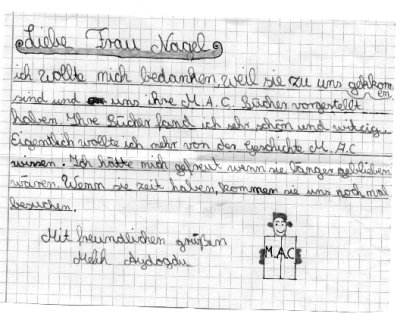 Liebe Frau Nagel
ich wollte mich bedanken, weil sie zu uns gekkom
en
sind und uns ihre M.A.C. Bücher vorgestellt
haben. Ihre Bücher fand ich sehr schön und witzig.
Eigentlich wollte ich mehr von der Geschichte M.A.C
wissen. Ich hätte mich gefreut wenn sie länger geblieben
wären. Wenn sie zeit haben, kommen sie uns noch mal
besuchen.
Mit freundlichen grüßen
Melih Aydogdu
M.A.C